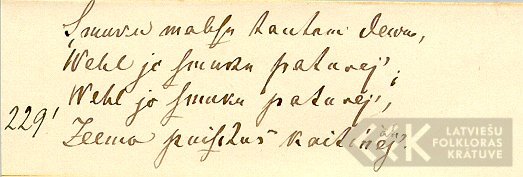 Smuku mahsu tautam dewu,
Wehl jo smuku paturej';
Wehl jo smuku paturej',
229' Zeema puischus kaitinaht.
LATVIEŠU
FOLKLORAS
KRATUVE